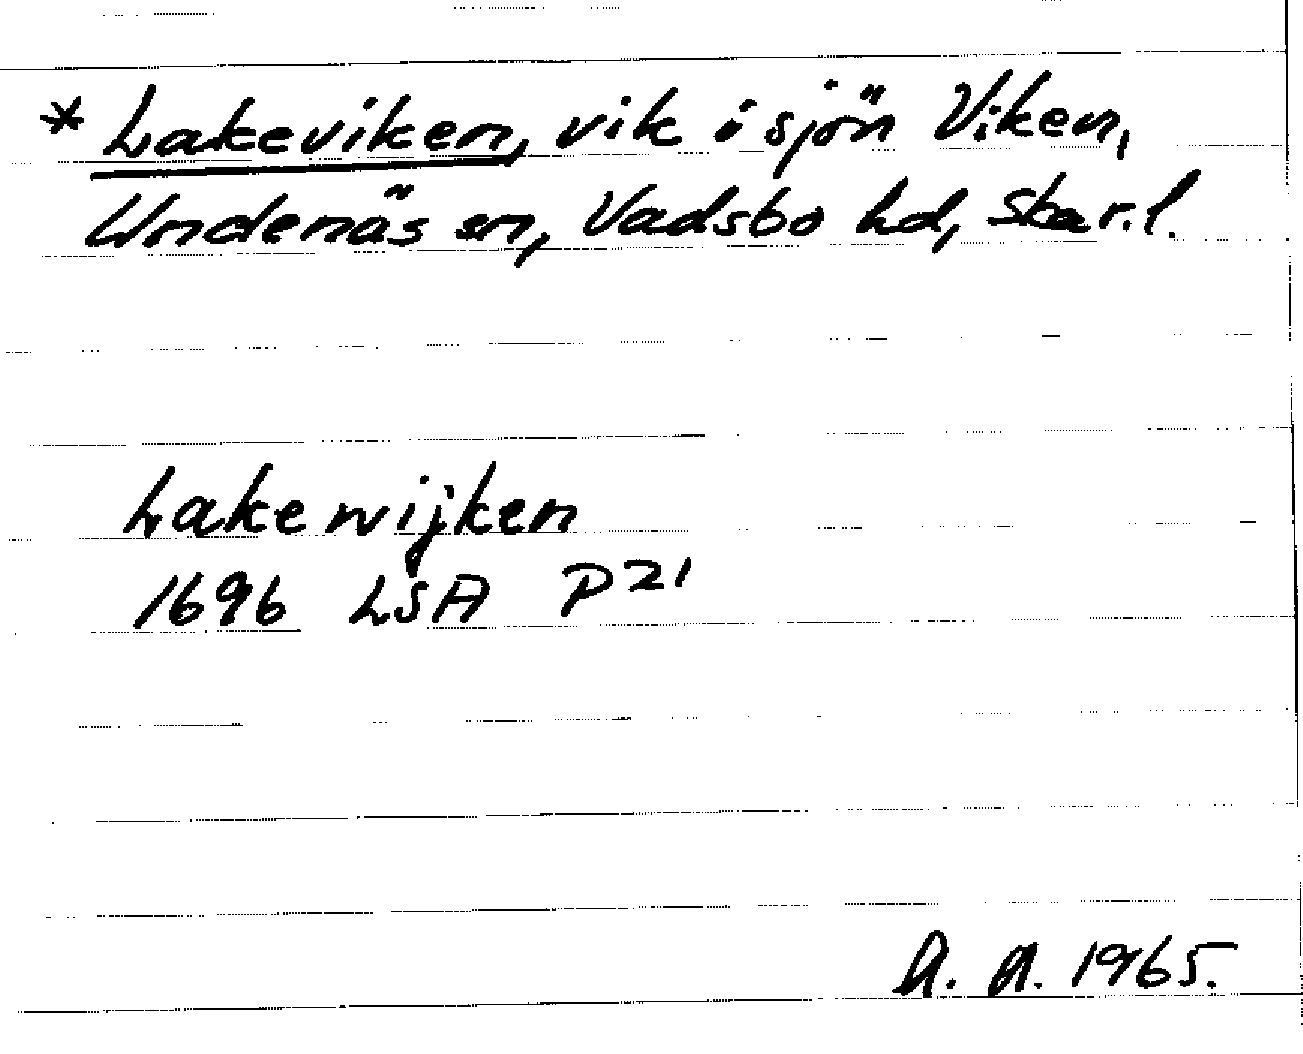 * Lakeviken, vik i sjön Viken,
Undenäs sn, Vadsbo hd, Skar. l.
Lakewijken
1696 LSA P21
A. A. 1965.